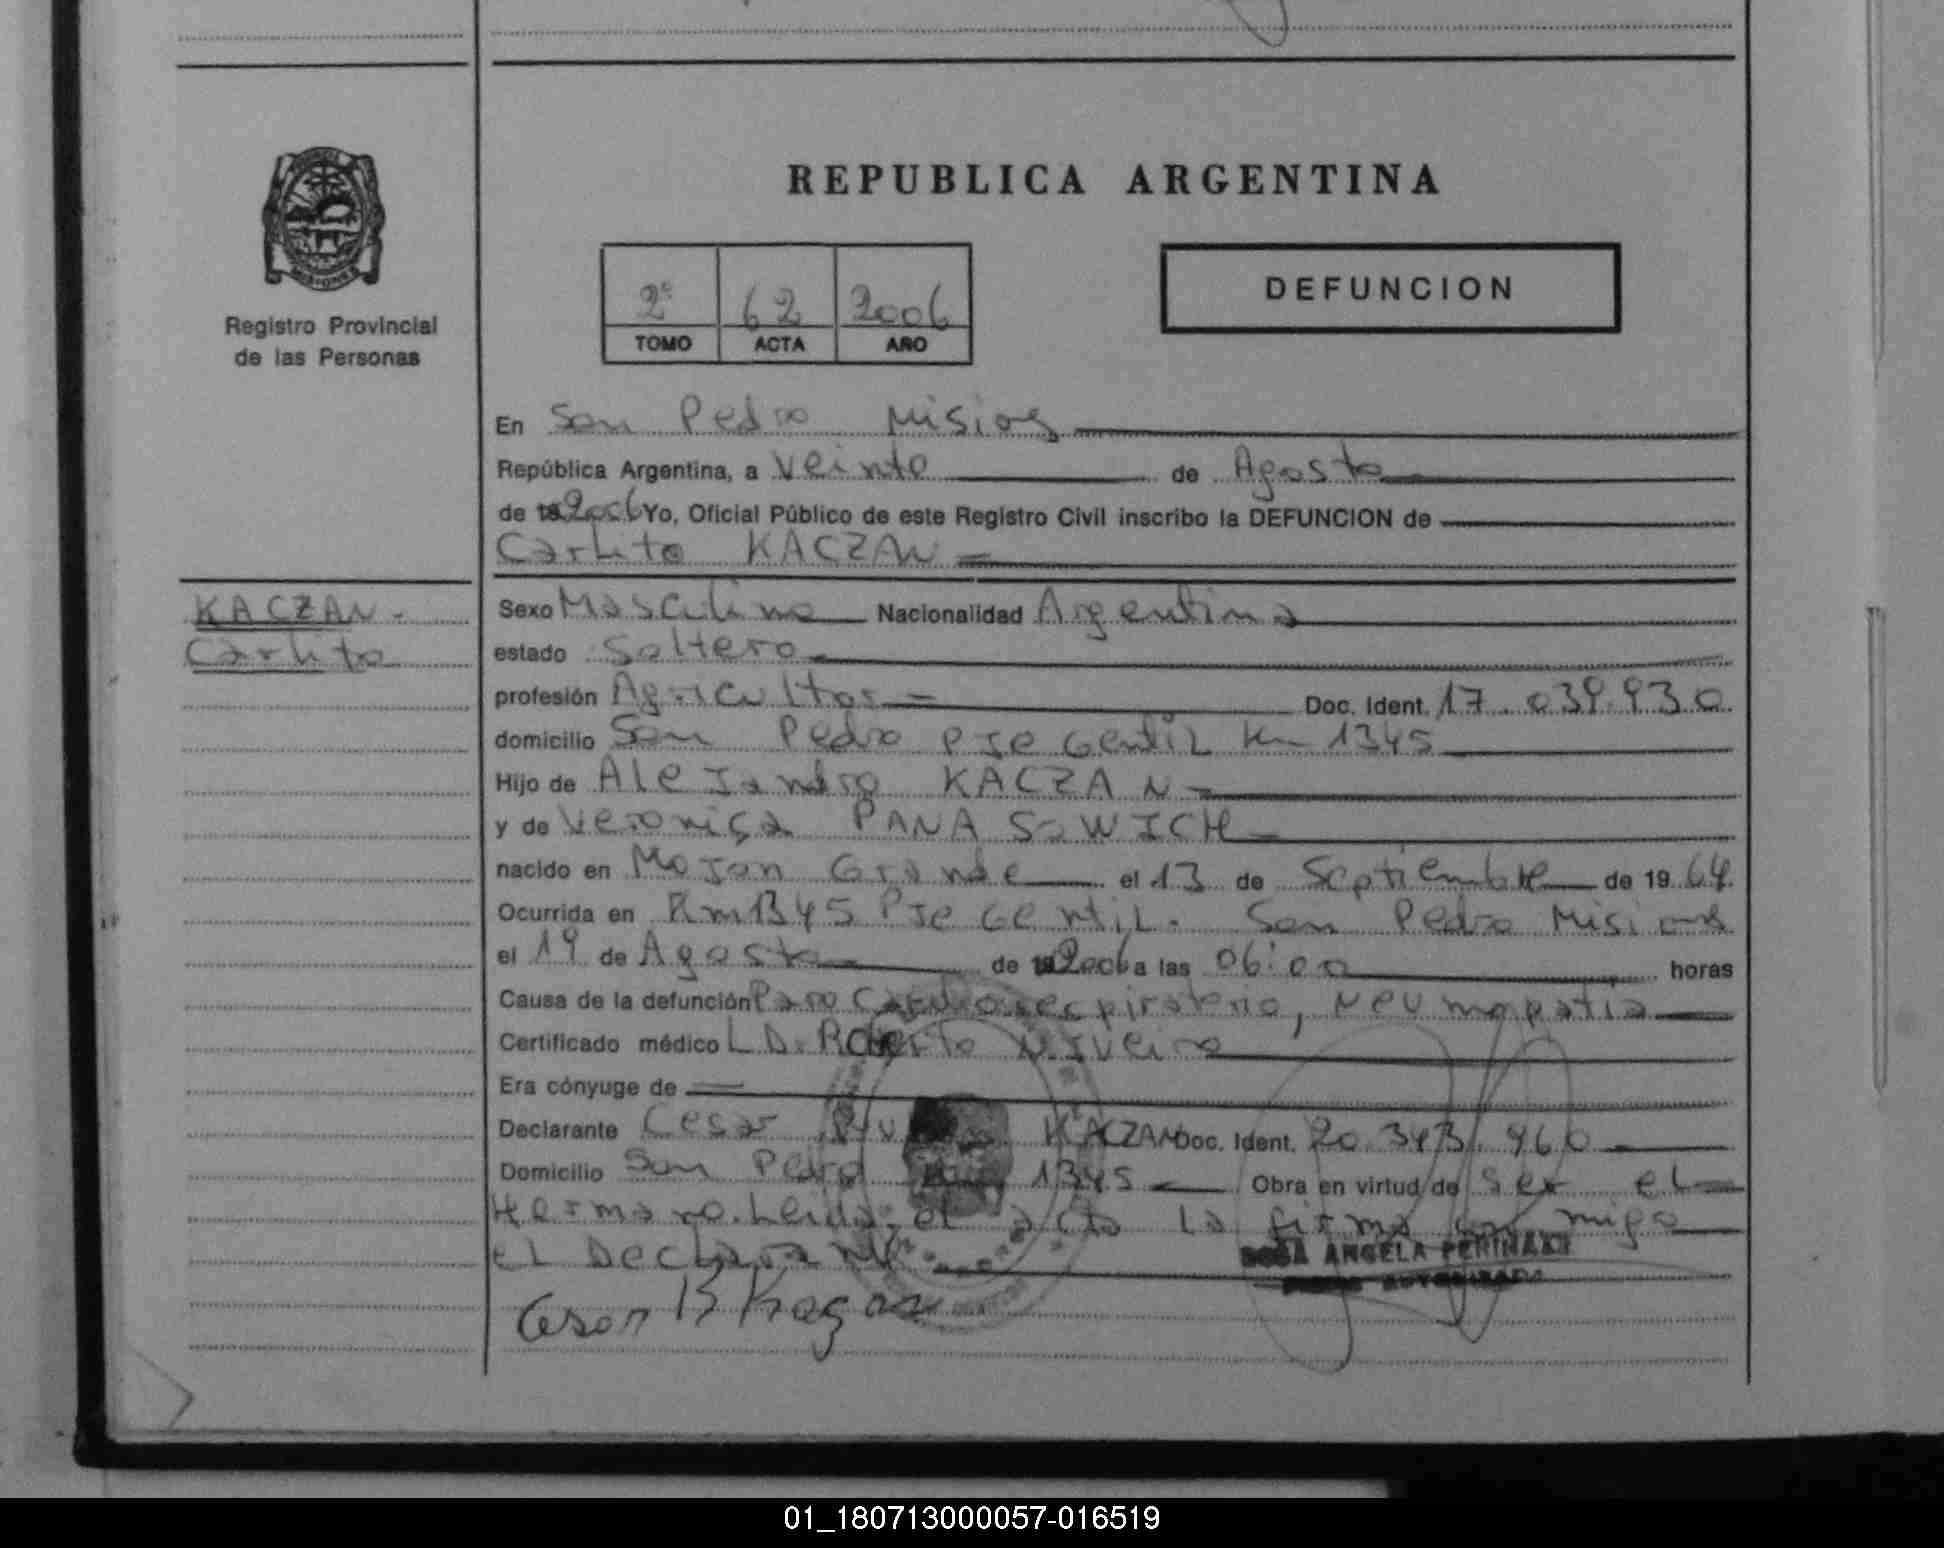 REPUBLICA ARGENTINA
Registro Provincial
de las Personas
2º 62 2006
TOMO ACTA AÑO
DEFUNCION
En San Pedro Misiones
República Argentina, a Veinte de Agosto
de 19 2006 Yo, Oficial Público de este Registro Civil inscribo la DEFUNCION de
Carlito KACZAN
KACZAN -
Carlito
Sexo Masculino Nacionalidad Argentina
estado Soltero
profesión Agricultor Doc. Ident. 17.039.930
domicilio San Pedro Pje Gentil Km 1345
Hijo de Alejandro KACZAN
y de Veronica PANASOWICH
nacido en Mojon Grande el 13 de Septiembre de 19 64
Ocurrida en Km 1345 Pje Gentil. San Pedro Misiones
el 19 de Agosto de 19 2006 a las 06:00 horas
Causa de la defunción Paro Cardiorespiratorio, Neumopatia
Certificado médico L D. Roberto
Era cónyuge de
Declarante Cesar KACZAN Doc. Ident. 20.343.960
Domicilio San Pedro 1345 Obra en virtud de ser el
Hermano. Leida el acta la firma conmigo
el Declarante
Cesar B Kaczan
ANGELA
01_180713000057-016519